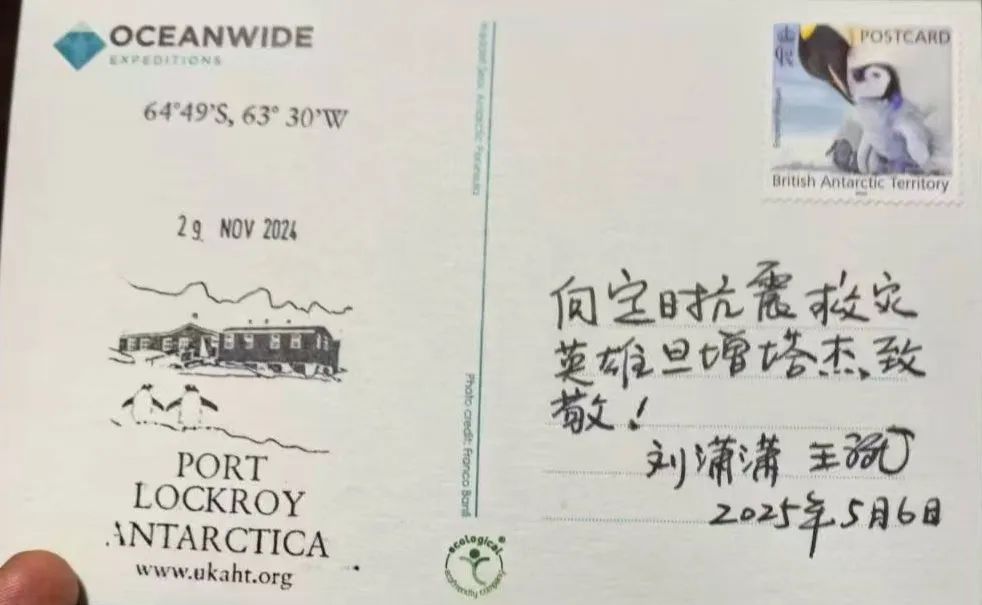 OCEANWIDE
EXPEDITIONS
64°49'S, 63° 30'W
29 NOV 2024
PORT
LOCKROY
ANTARCTICA
www.ukaht.org
Antarctic Peninsula
Photo credit: Franco Banfi
ecological
ecofriendly company
POSTCARD
British Antarctic Territory
向定日抗震救灾
英雄旦增塔杰致
敬！
刘潇潇 王
2025年5月6日